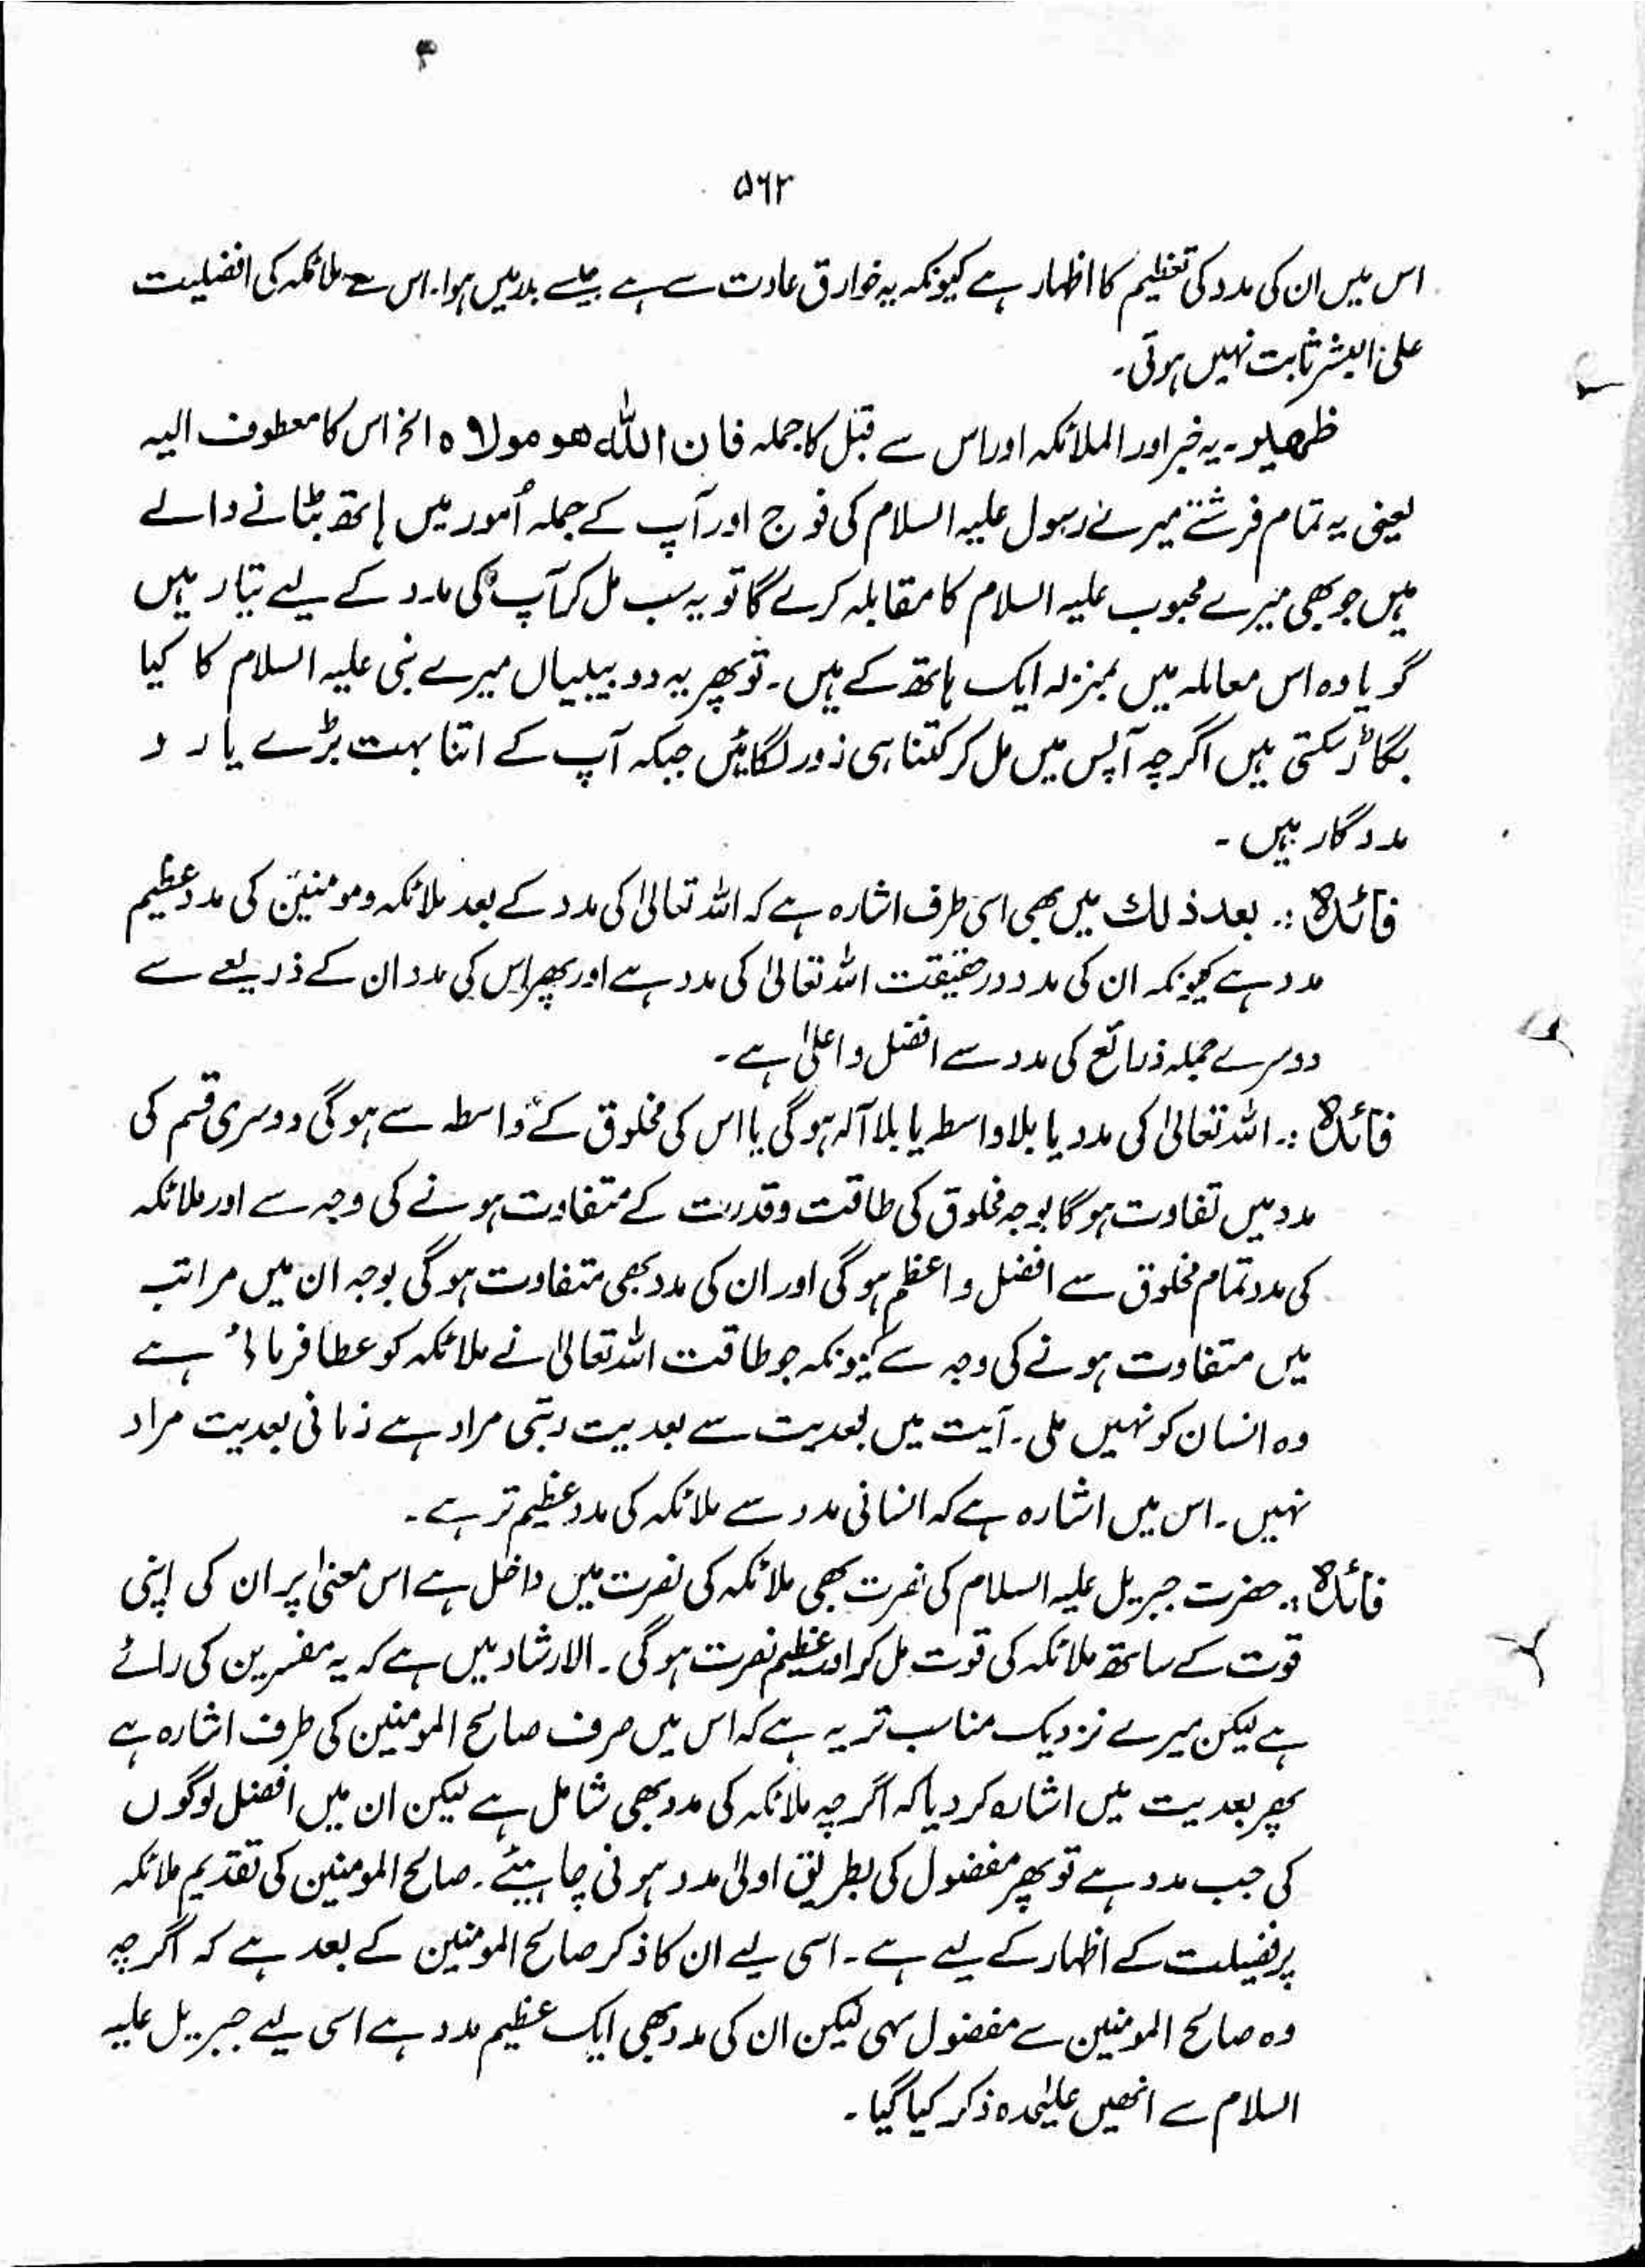 ۳
۵۶۲
اس میں ان کی مدد کی تعظیم کا اظہار ہے کیونکہ یہ خوارق عادت سے ہے جیسے بدر میں ہوا۔ اس سے ملائکہ کی افضلیت
علی البشر ثابت نہیں ہوتی۔
ظھیلو۔ یہ خبر اور الملائکہ اور اس سے قبل کا جملہ فان اللہ ھو مولاہ الخ اس کا معطوف الیہ
یعنی یہ تمام فرشتے میرے رسول علیہ السلام کی فوج اور آپ کے جملہ اُمور میں ہاتھ بٹانے والے
ہیں جو بھی میرے محبوب علیہ السلام کا مقابلہ کرے گا تو یہ سب مل کر آپ کی مدد کے لیے تیار ہیں
گویا وہ اس معاملہ میں بمنزلہ ایک ہاتھ کے ہیں۔ تو پھر یہ دو بیبیاں میرے نبی علیہ السلام کا کیا
بگاڑ سکتی ہیں اگرچہ آپس میں مل کر کتنا ہی زور لگائیں جبکہ آپ کے اتنا بہت بڑے یار و
مددگار ہیں ۔
فائدہ :۔ بعد ذلك میں بھی اسی طرف اشارہ ہے کہ اللہ تعالیٰ کی مدد کے بعد ملائکہ و مومنین کی مدد عظیم
مدد ہے کیونکہ ان کی مدد درحقیقت اللہ تعالیٰ کی مدد ہے اور پھر اس کی مدد ان کے ذریعے سے
دوسرے جملہ ذرائع کی مدد سے افضل و اعلیٰ ہے ۔
فائدہ :۔ اللہ تعالیٰ کی مدد یا بلاواسطہ یا بلا آلہ ہوگی یا اس کی مخلوق کے واسطہ سے ہوگی دوسری قسم کی
مدد میں تفاوت ہوگا بوجہ مخلوق کی طاقت و قدرت کے متفاوت ہونے کی وجہ سے اور ملائکہ
کی مدد تمام مخلوق سے افضل و اعظم ہوگی اور ان کی مدد بھی متفاوت ہوگی بوجہ ان میں مراتب
میں متفاوت ہونے کی وجہ سے کیونکہ جو طاقت اللہ تعالیٰ نے ملائکہ کو عطا فرمائی ہے
وہ انسان کو نہیں ملی۔ آیت میں بعدیت سے بعدیت رتبی مراد ہے زمانی بعدیت مراد
نہیں۔ اس میں اشارہ ہے کہ انسانی مدد سے ملائکہ کی مدد عظیم تر ہے ۔
فائدہ :۔ حضرت جبریل علیہ السلام کی نصرت بھی ملائکہ کی نصرت میں داخل ہے اس معنیٰ پر ان کی اپنی
قوت کے ساتھ ملائکہ کی قوت مل کر اور عظیم نصرت ہوگی ۔ الارشاد میں ہے کہ یہ مفسرین کی رائے
ہے لیکن میرے نزدیک مناسب تر یہ ہے کہ اس میں صرف صالح المومنین کی طرف اشارہ ہے
پھر بعدیت میں اشارہ کر دیا کہ اگرچہ ملائکہ کی مدد بھی شامل ہے لیکن ان میں افضل لوگوں
کی جب مدد ہے تو پھر مفضول کی بطریق اولیٰ مدد ہونی چاہیئے ۔ صالح المومنین کی تقدیم ملائکہ
پر فضیلت کے اظہار کے لیے ہے ۔ اسی لیے ان کا ذکر صالح المومنین کے بعد ہے کہ اگرچہ
وہ صالح المومنین سے مفضول سہی لیکن ان کی مدد بھی ایک عظیم مدد ہے اسی لیے جبریل علیہ
السلام سے انھیں علیٰحدہ ذکر کیا گیا ۔